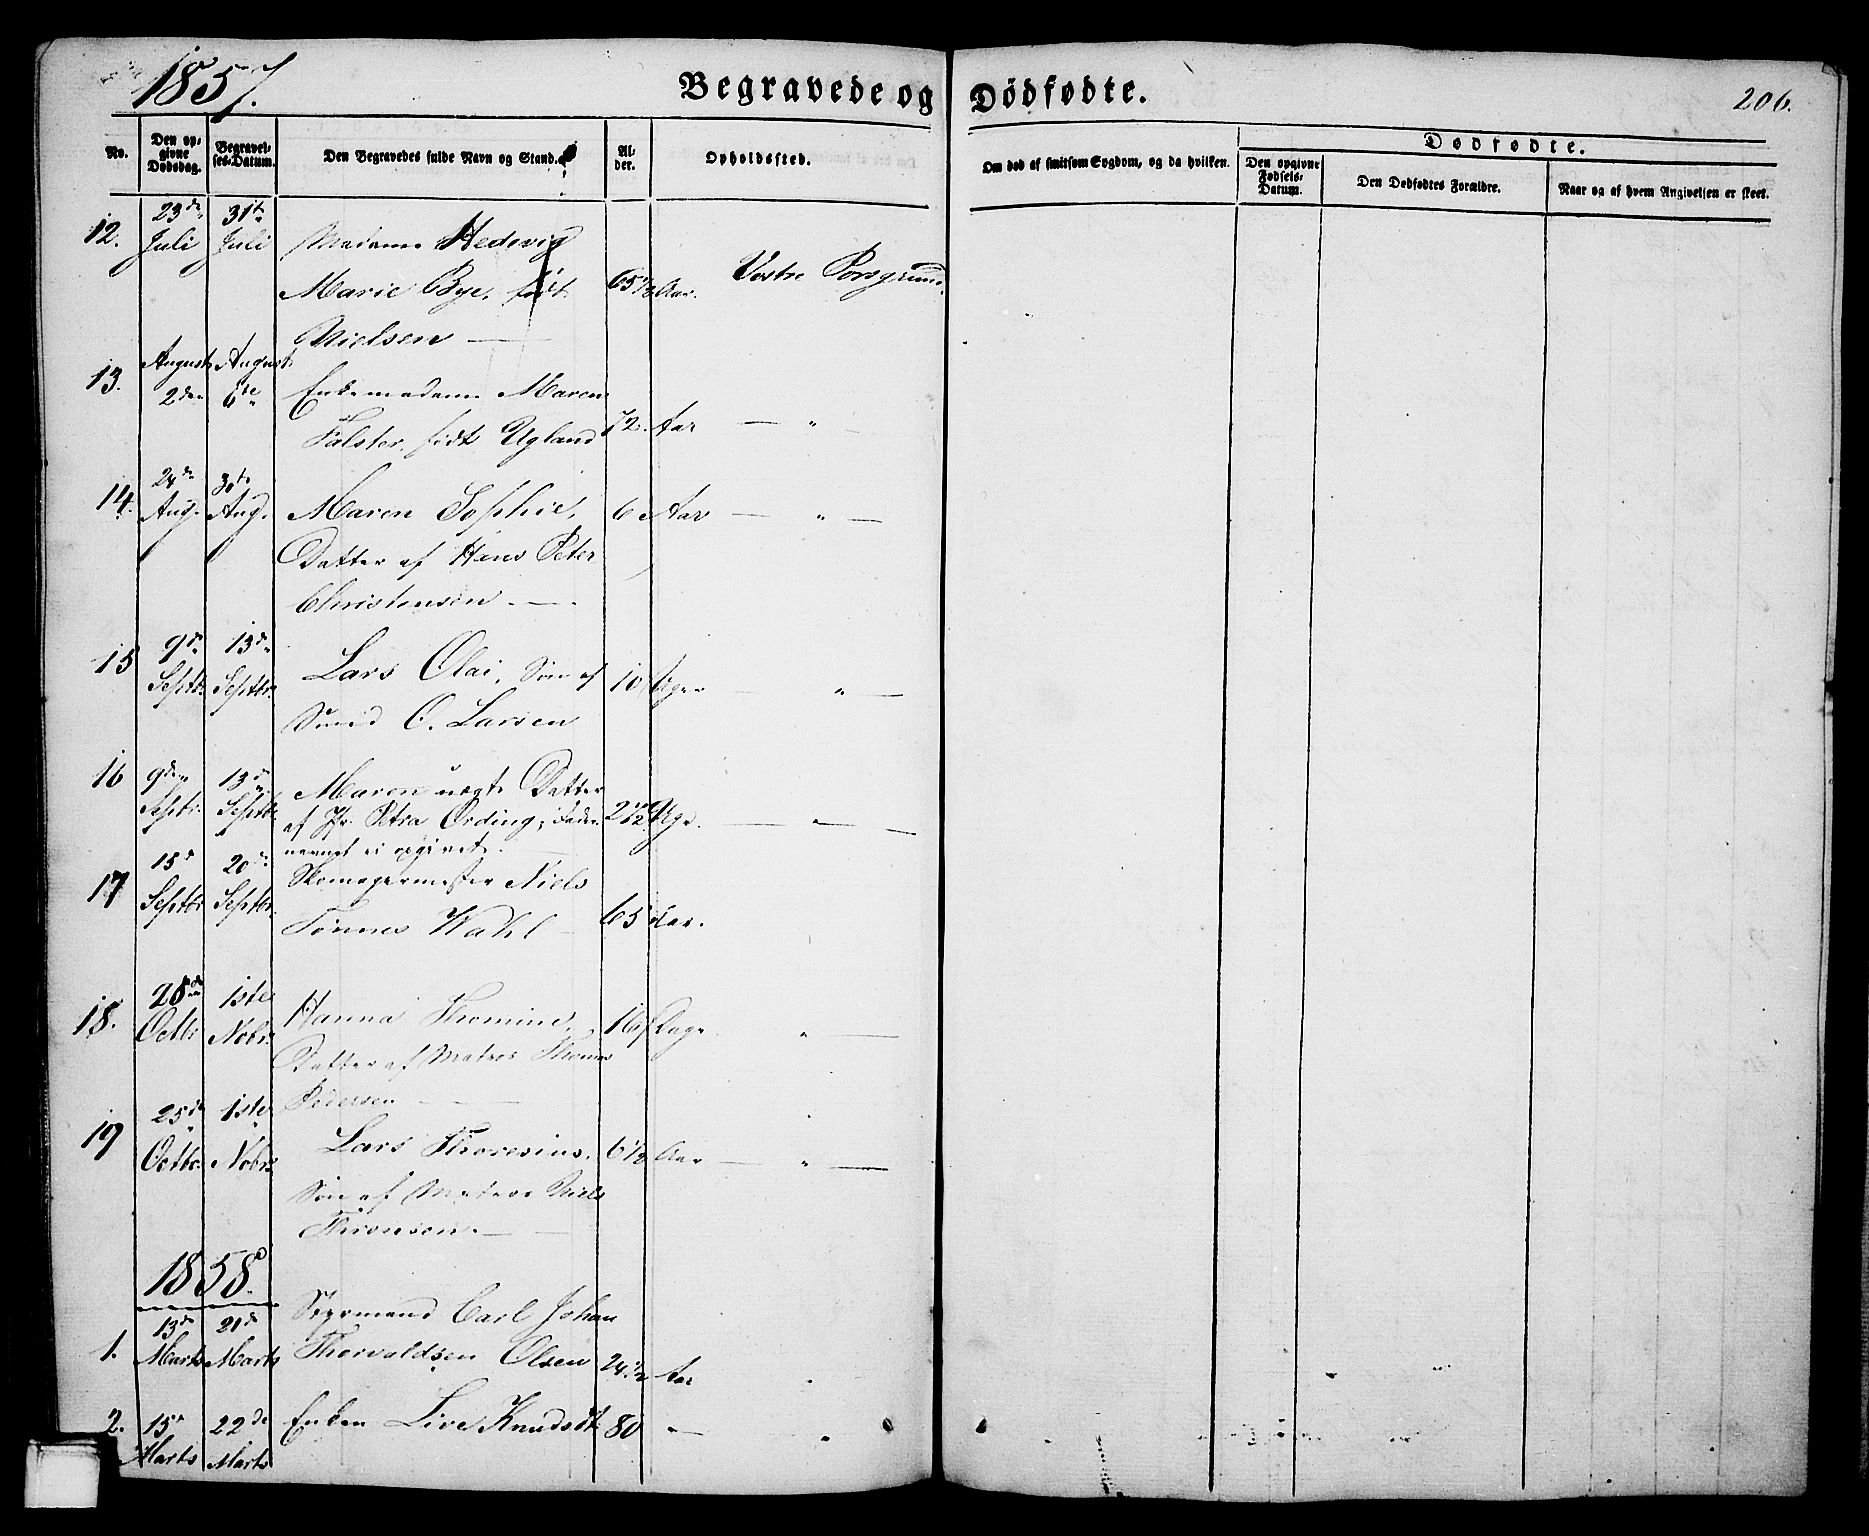 1857.
Begravede og Dödfødte.
206.
No.
Den opgivne Dødsdag.
Begravelses-Datum.
Den Begravedes fulde Navn og Stand.
Alder.
Opholdssted.
Om død af smitsom Sygdom, og da hvilken.
Dødfødte.
Den opgivne Fødsels-Datum.
Den Dødfødtes Forældre.
Naar og af hvem Angivelsen er skeet.
12. 23de Juli 31te Juli Madame Hedevig
Marie Bye, født 65½ Aar. Vestre Porsgrund.
Nielsen
13. August 2den August 6te Enkemadame Maren
Falster, født Ugland 72. Aar — " —
14. 24de Aug. 30te Aug. Maren Sophie, 6 Aar — " —
Datter af Hans Peter
Christensen
15 9de Septbr. 13de Septbr. Lars Olai, Søn af 10 Uger — " —
Smed O. Larsen
16 9den Septbr. 13de Septbr. Maren uægte Datter
af Jfr. Petra Ording; Faderen 2½ Uge. — " —
nævnet ei opgivet.
17 15d Septbr 20de Septbr. Skomagermester Niels
Tønnes Wahl 65 Aar.
18. 28de Octbr 1ste Nobr. Hanna Thomine, 16 Dage " —
Datter af Matros Thomas
Pedersen
19 25de Octbr. 1ste Nobr. Lars Thoresius, 6½ Aar — " —
Søn af Matros Niels
Thronsen.
1858.
1. 13de Marts 21de Marts Styrmand Carl Johan
Thorvaldsen Olsen 24½ Aar
2. 15de Marts 22de Marts Enken Live Knudsdt. 80 — "